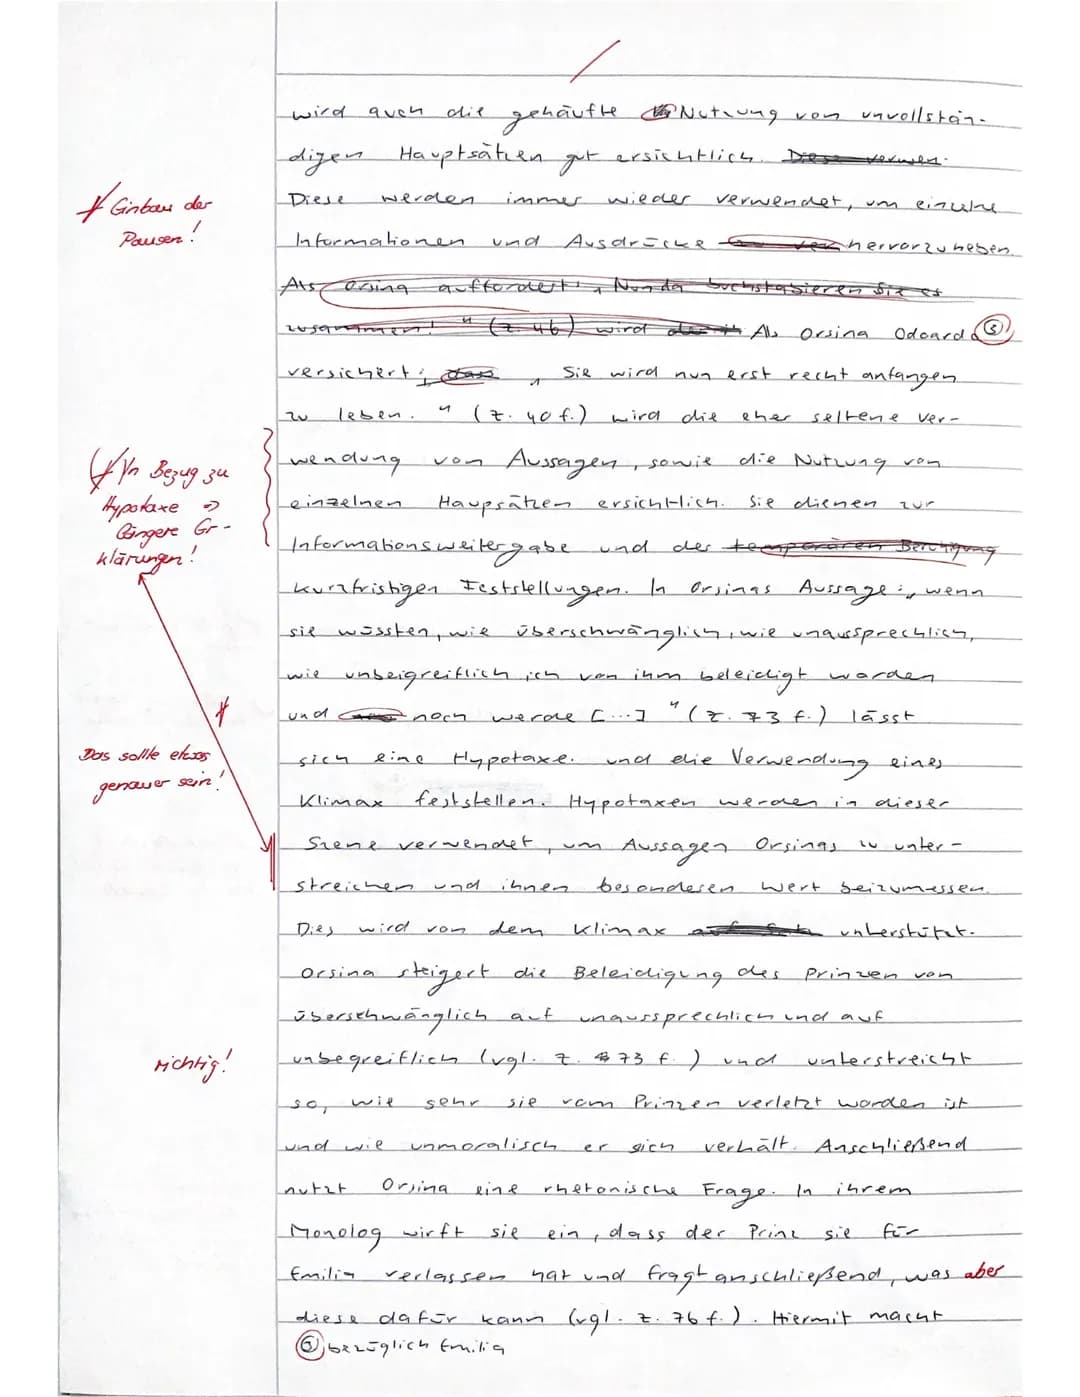 wird auch die gehäufte Nutzung von unvollstän-
digen Hauptsätzen gut ersichtlich. Diese verwen-
Diese werden immer wieder verwendet, um einzelne
Informationen und Ausdrücke hervorzuheben.
Als Orsina auffordert: „Nun da buchstabieren Sie es
zusammen!" (Z. 46) wird Als Orsina Odoardo ⑤
versichert: „Sie wird nun erst recht anfangen
zu leben." (Z. 40 f.) wird die eher seltene Ver-
wendung von Aussagen, sowie die Nutzung von
einzelnen Haupsätzen ersichtlich. Sie dienen zur
Informationsweitergabe und der temporären Beruhigung
kurzfristigen Feststellungen. In Orsinas Aussage: „wenn
sie wüssten, wie überschwänglich, wie unaussprechlich,
wie unbeigreiflich ich von ihm beleidigt worden
und noch werde [...]" (Z. 73 f.) lässt
sich eine Hypotaxe. und die Verwendung eines
Klimax feststellen. Hypotaxen werden in dieser
Szene verwendet, um Aussagen Orsinas zu unter-
streichen und ihnen besonderen Wert beizumessen.
Dies wird von dem Klimax unterstützt.
Orsina steigert die Beleidigung des Prinzen von
überschwänglich auf unaussprechlich und auf
unbegreiflich (vgl. Z. 73 f.) und unterstreicht
so, wie sehr sie vom Prinzen verletzt worden ist
und wie unmoralisch er sich verhält. Anschließend
nutzt Orsina eine rhetorische Frage. In ihrem
Monolog wirft sie ein, dass der Prinz sie für
Emilia verlassen hat und fragt anschließend, was aber
diese dafür kann (vgl. Z. 76 f.). Hiermit macht
⑤ bezüglich Emilia
Einbau der
Pausen!
In Bezug zu
Hypotaxe ⇒
Längere Er-
klärungen!
Das sollte etwas
genauer sein!
richtig!